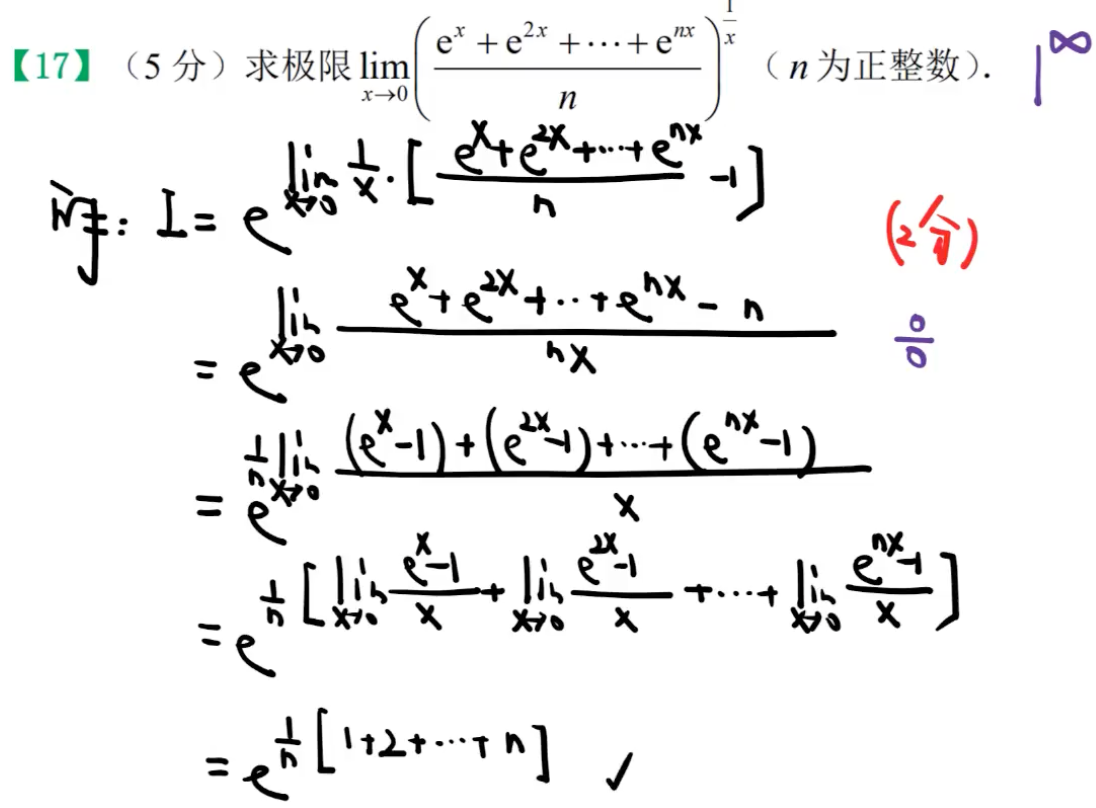 【17】（5 分）求极限 lim_{x→0} ( (e^x + e^{2x} + ⋯ + e^{nx}) / n )^{1/x} （ n 为正整数）. 1^∞
解: I = e^{lim_{x→0} 1/x · [ (e^x + e^{2x} + ⋯ + e^{nx}) / n - 1 ]} (2分)
= e^{lim_{x→0} (e^x + e^{2x} + ⋯ + e^{nx} - n) / nx} 0/0
= e^{1/n lim_{x→0} ((e^x - 1) + (e^{2x} - 1) + ⋯ + (e^{nx} - 1)) / x}
= e^{1/n [ lim_{x→0} (e^x - 1)/x + lim_{x→0} (e^{2x} - 1)/x + ⋯ + lim_{x→0} (e^{nx} - 1)/x ]}
= e^{1/n [1 + 2 + ⋯ + n]} ✓